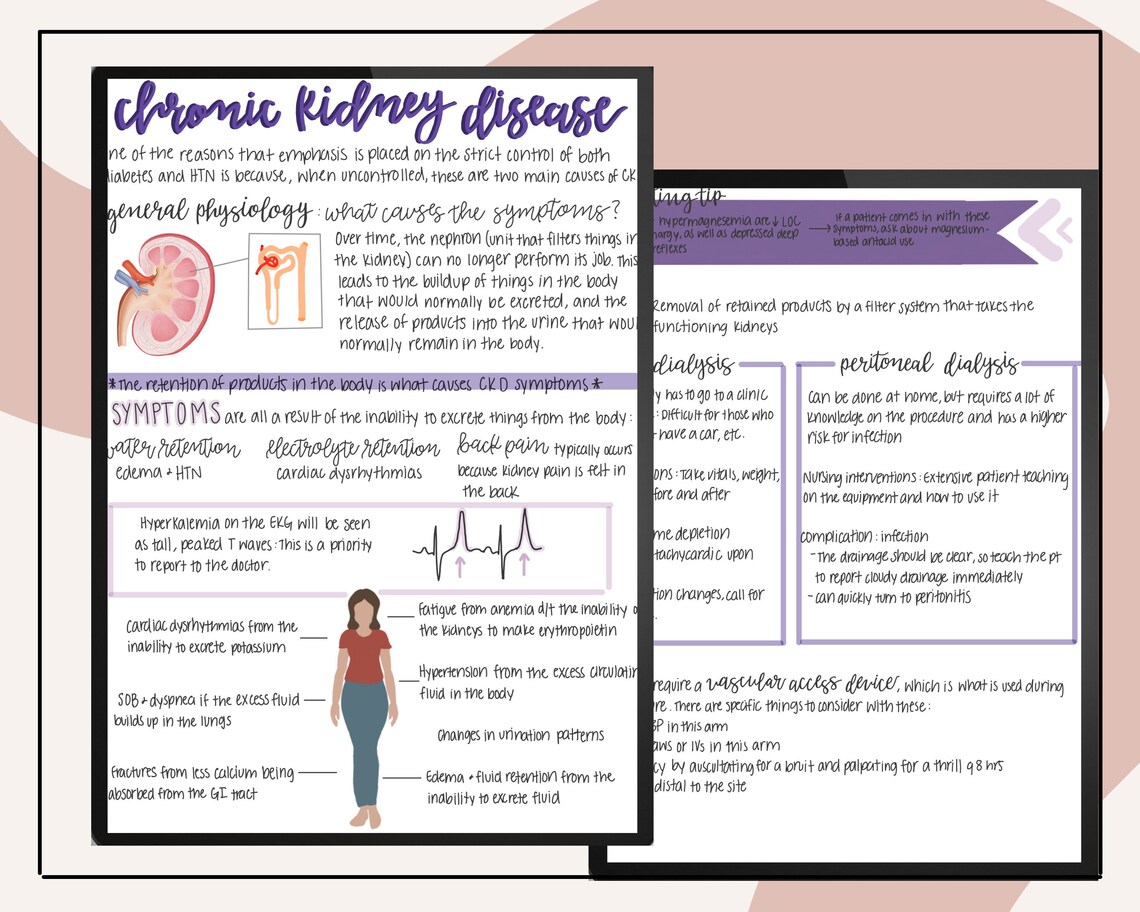 chronic kidney disease
ne of the reasons that emphasis is placed on the strict control of both
iabetes and HTN is because, when uncontrolled, these are two main causes of CK
general physiology: what causes the symptoms?
Over time, the nephron (unit that filters things in
the kidney) can no longer perform its job. This
leads to the buildup of things in the body
that would normally be excreted, and the
release of products into the urine that woul
normally remain in the body.
*The retention of products in the body is what causes CKD symptoms*
SYMPTOMS are all a result of the inability to excrete things from the body:
water retention
edema + HTN
electrolyte retention
cardiac dysrhythmias
back pain typically occurs
because kidney pain is felt in
the back
Hyperkalemia on the EKG will be seen
as tall, peaked T waves: This is a priority
to report to the doctor.
Cardiac dysrhythmias from the
inability to excrete potassium
SOB + dyspnea if the excess fluid
builds up in the lungs
Fractures from less calcium being
absorbed from the GI tract
Fatigue from anemia d/t the inability o
the kidneys to make erythropoietin
Hypertension from the excess circulatin
fluid in the body
Changes in urination patterns
Edema + fluid retention from the
inability to excrete fluid
ting tip
hypermagnesemia are ↓ LOC
hargy, as well as depressed deep
reflexes
→ If a patient comes in with these
symptoms, ask about magnesium-
based antacid use
Removal of retained products by a filter system that takes the
functioning kidneys
dialysis
y has to go to a clinic
: Difficult for those who
have a car, etc.
ons: Take vitals, weight,
fore and after
me depletion
tachycardic upon
tion changes, call for
peritoneal dialysis
Can be done at home, but requires a lot of
knowledge on the procedure and has a higher
risk for infection
Nursing interventions: Extensive patient teaching
on the equipment and how to use it
complication: infection
- The drainage should be clear, so teach the pt
to report cloudy drainage immediately
- can quickly turn to peritonitis
require a vascular access device, which is what is used during
re. There are specific things to consider with these:
BP in this arm
aws or IVs in this arm
cy by auscultating for a bruit and palpating for a thrill q 8 hrs
distal to the site